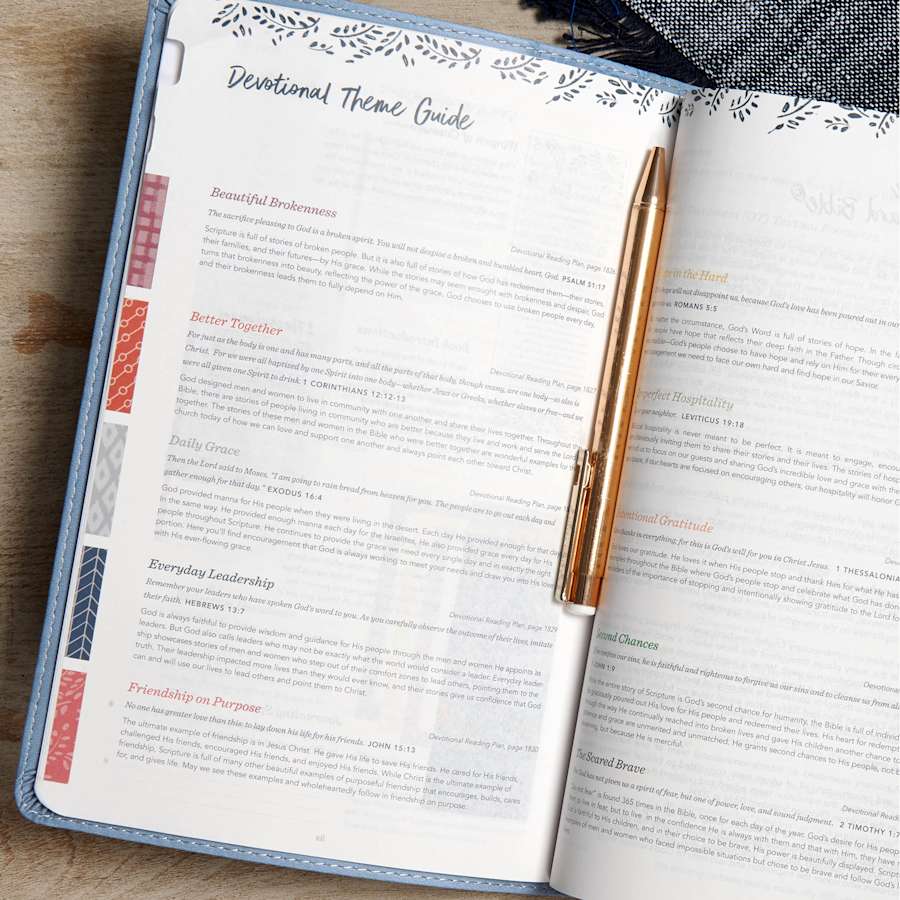 Devotional Theme Guide
Beautiful Brokenness
Devotional Reading Plan, page 1826
The sacrifice pleasing to God is a broken spirit. You will not despise a broken and humbled heart, God. PSALM 51:17
Scripture is full of stories of broken people. But it is also full of stories of how God has redeemed them—their stories,
their families, and their futures—by His grace. While the stories may seem wrought with brokenness and despair, God
turns that brokenness into beauty, reflecting the power of the grace. God chooses to use broken people every day,
and their brokenness leads them to fully depend on Him.
Better Together
Devotional Reading Plan, page 1827
For just as the body is one and has many parts, and all the parts of that body, though many, are one body—so also is
Christ. For we were all baptized by one Spirit into one body—whether Jews or Greeks, whether slaves or free—and we
were all given one Spirit to drink. 1 CORINTHIANS 12:12-13
God designed men and women to live in community with one another and share their lives together. Throughout the
Bible, there are stories of people living in community who are better because they live and work and serve the Lord
together. The stories of these men and women in the Bible who were better together are wonderful examples for the
church today of how we can love and support one another and always point each other toward Christ.
Daily Grace
Devotional Reading Plan, page
Then the Lord said to Moses, "I am going to rain bread from heaven for you. The people are to go out each day and
gather enough for that day." EXODUS 16:4
God provided manna for His people when they were living in the desert. Each day He provided enough for that day
In the same way. He provided enough manna each day for the Israelites, He also provided grace every day for His
people throughout Scripture. He continues to provide the grace we need every single day and in exactly the right
portion. Here you'll find encouragement that God is always working to meet your needs and draw you into His love
with His ever-flowing grace.
Everyday Leadership
Devotional Reading Plan, page 1829
Remember your leaders who have spoken God's word to you. As you carefully observe the outcome of their lives, imitate
their faith. HEBREWS 13:7
God is always faithful to provide wisdom and guidance for His people through the men and women He appoints as
leaders. But God also calls leaders who may not be exactly what the world would consider a leader. Everyday leader-
ship showcases stories of men and women who step out of their comfort zones to lead others, pointing them to the
truth. Their leadership impacted more lives than they would ever know, and their stories give us confidence that God
can and will use our lives to lead others and point them to Christ.
Friendship on Purpose
Devotional Reading Plan, page 1830
No one has greater love than this: to lay down his life for his friends. JOHN 15:13
The ultimate example of friendship is in Jesus Christ. He gave His life to save His friends. He cared for His friends,
challenged His friends, encouraged His friends, and enjoyed His friends. While Christ is the ultimate example of
friendship, Scripture is full of many other beautiful examples of purposeful friendship that encourages, builds, cares
for, and gives life. May we see these examples and wholeheartedly follow in friendship on purpose.
xii
in the Hard
hope will not disappoint us, because God's love has been poured out in our
ROMANS 5:5
matter the circumstance, God's Word is full of stories of hope. In the
people have hope that reflects their deep faith in the Father. Through
God's people choose to have hope and rely on Him for their every
we need to face our own hard and find hope in our Savior.
perfect Hospitality
your neighbor. LEVITICUS 19:18
hospitality is never meant to be perfect. It is meant to engage,
inviting them to share their stories and their lives. The stories of
us to focus on our guests and sharing God's incredible love and grace with the
if our hearts are focused on encouraging others, our hospitality will honor
Intentional Gratitude
thanks in everything; for this is God's will for you in Christ Jesus. 1 THESSALONIA
loves our gratitude. He loves it when His people stop and thank Him for what He has
throughout the Bible where God's people stop and celebrate what God has
of the importance of stopping and intentionally showing gratitude to the Lord for
Second Chances
Devotional
confess our sins, he is faithful and righteous to forgive us our sins and to cleanse us from all
JOHN 1:9
the entire story of Scripture is God's second chance for humanity, the Bible is full of
graciously poured out His love for His people and redeemed their lives. His heart for
the way He continually reached into broken lives and gave His children another chance
and grace are unmerited and unmatched. He grants second chances to His people, not
but because He is merciful.
The Scared Brave
Devotional
God has not given us a spirit of fear, but one of power, love, and sound judgment. 2 TIMOTHY 1:7
not fear" is found 365 times in the Bible, once for each day of the year. God's desire for His
to live in fear, but to live in the confidence He is always with them and that with Him, they have
is faithful to His children, and in their choice to be brave, His power is beautifully displayed.
of men and women who faced impossible situations but chose to be brave and follow God's